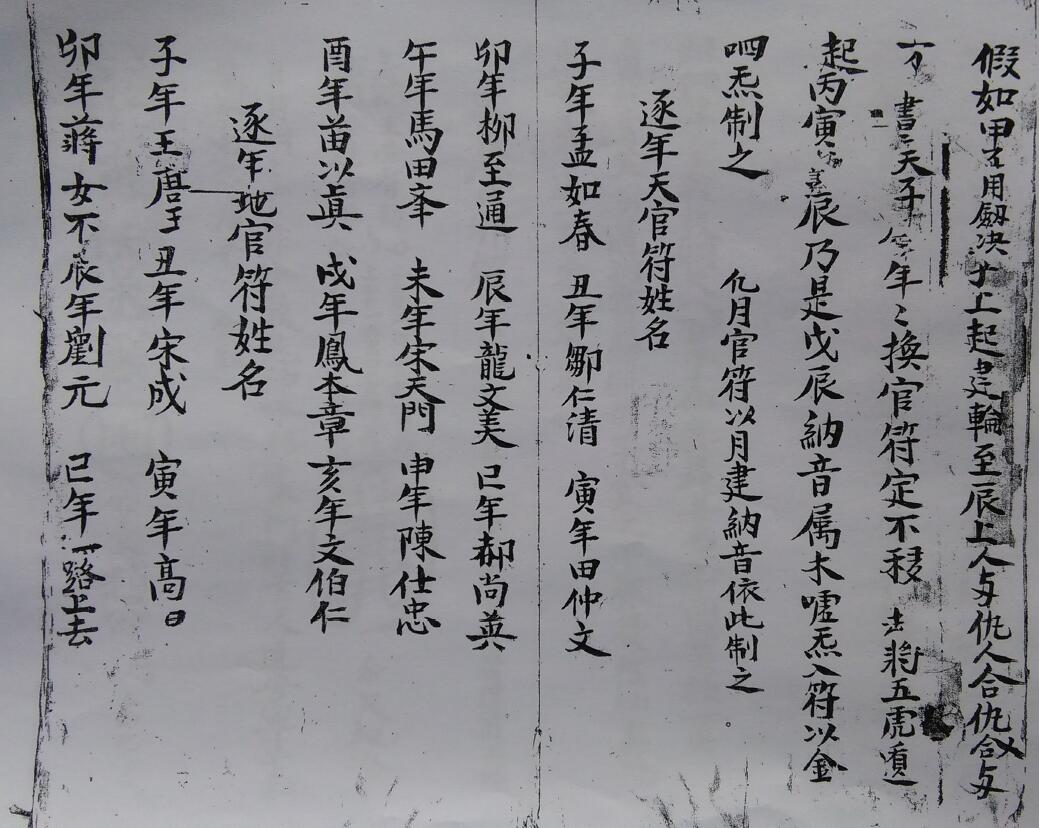 假如甲子用劔決于上起建輪至辰上人与仇人合仇合与
書天子年年〻換官符定不移 將五虎遁
起丙寅 辰乃是戊辰納音属木噓炁入符以金
呬炁制之 凡月官符以月建納音依此制之
逐年天官符姓名
子年孟如春 丑年鄒仁清 寅年田仲文
卯年柳至通 辰年龍文美 巳年郝尚英
午年馬田夆 未年宋天門 申年陳仕忠
酉年苗以眞 戌年鳳本章 亥年文伯仁
逐年地官符姓名
子年王唐王 丑年宋成 寅年高日
卯年蔣女不 辰年劉元 巳年一路上去